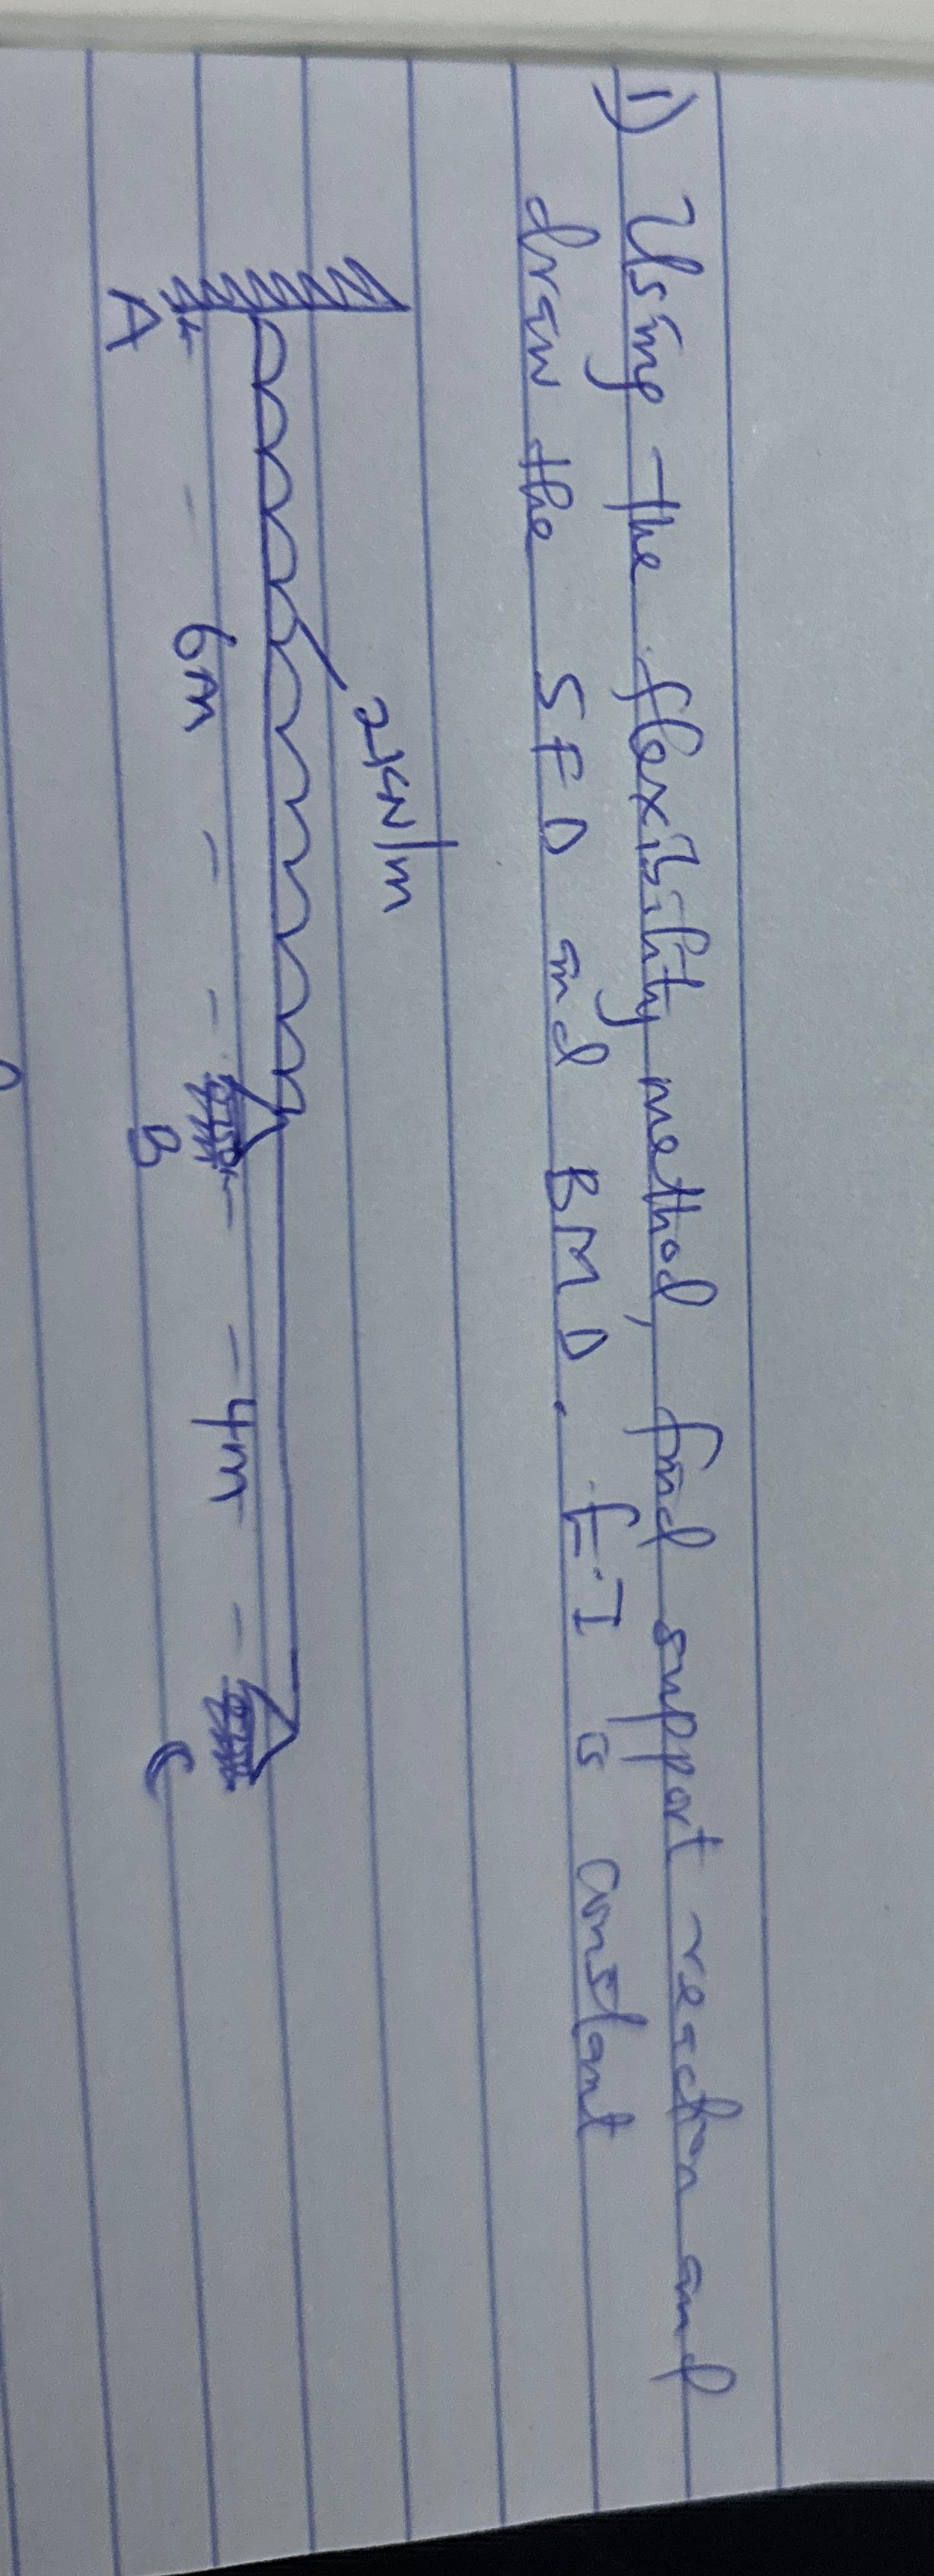 1) Using the flexibility method, find support reaction and
draw the SFD and BMD. E.I is constant
2KN/m
A 6m B 4m C